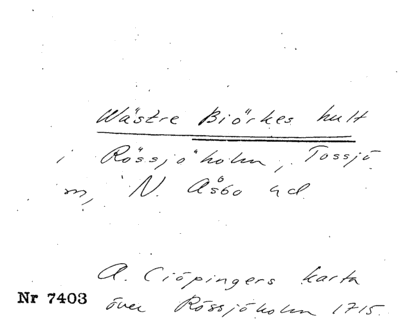 Wästre Biörkes hult
i Rössjöholm, Tossjö
m, N. Åsbo hd.
A. Ciöpingers karta
Nr 7403 över Rössjöholm 1715.